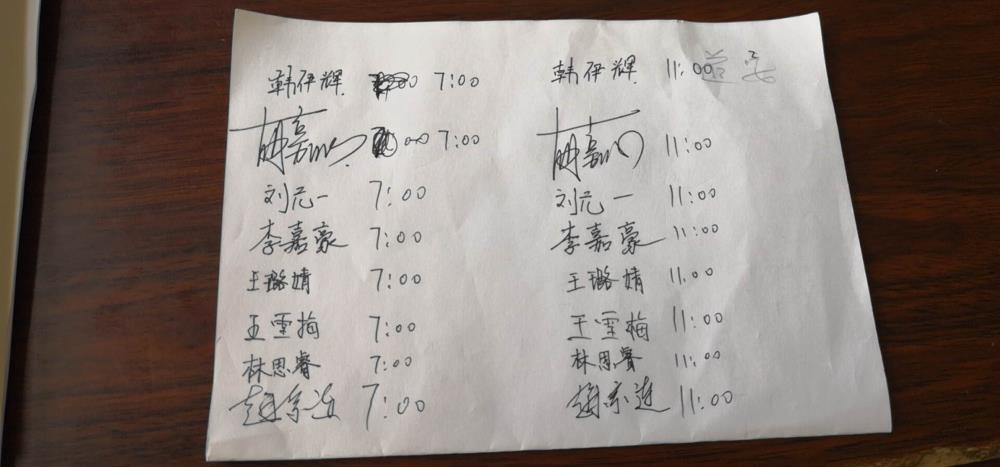 韩伊辉 7:00 韩伊辉 11:00
嘉 7:00 嘉 11:00
刘元一 7:00 刘元一 11:00
李嘉豪 7:00 李嘉豪 11:00
王璐婧 7:00 王璐婧 11:00
王雪梅 7:00 王雪梅 11:00
林思睿 7:00 林思睿 11:00
7:00 11:00